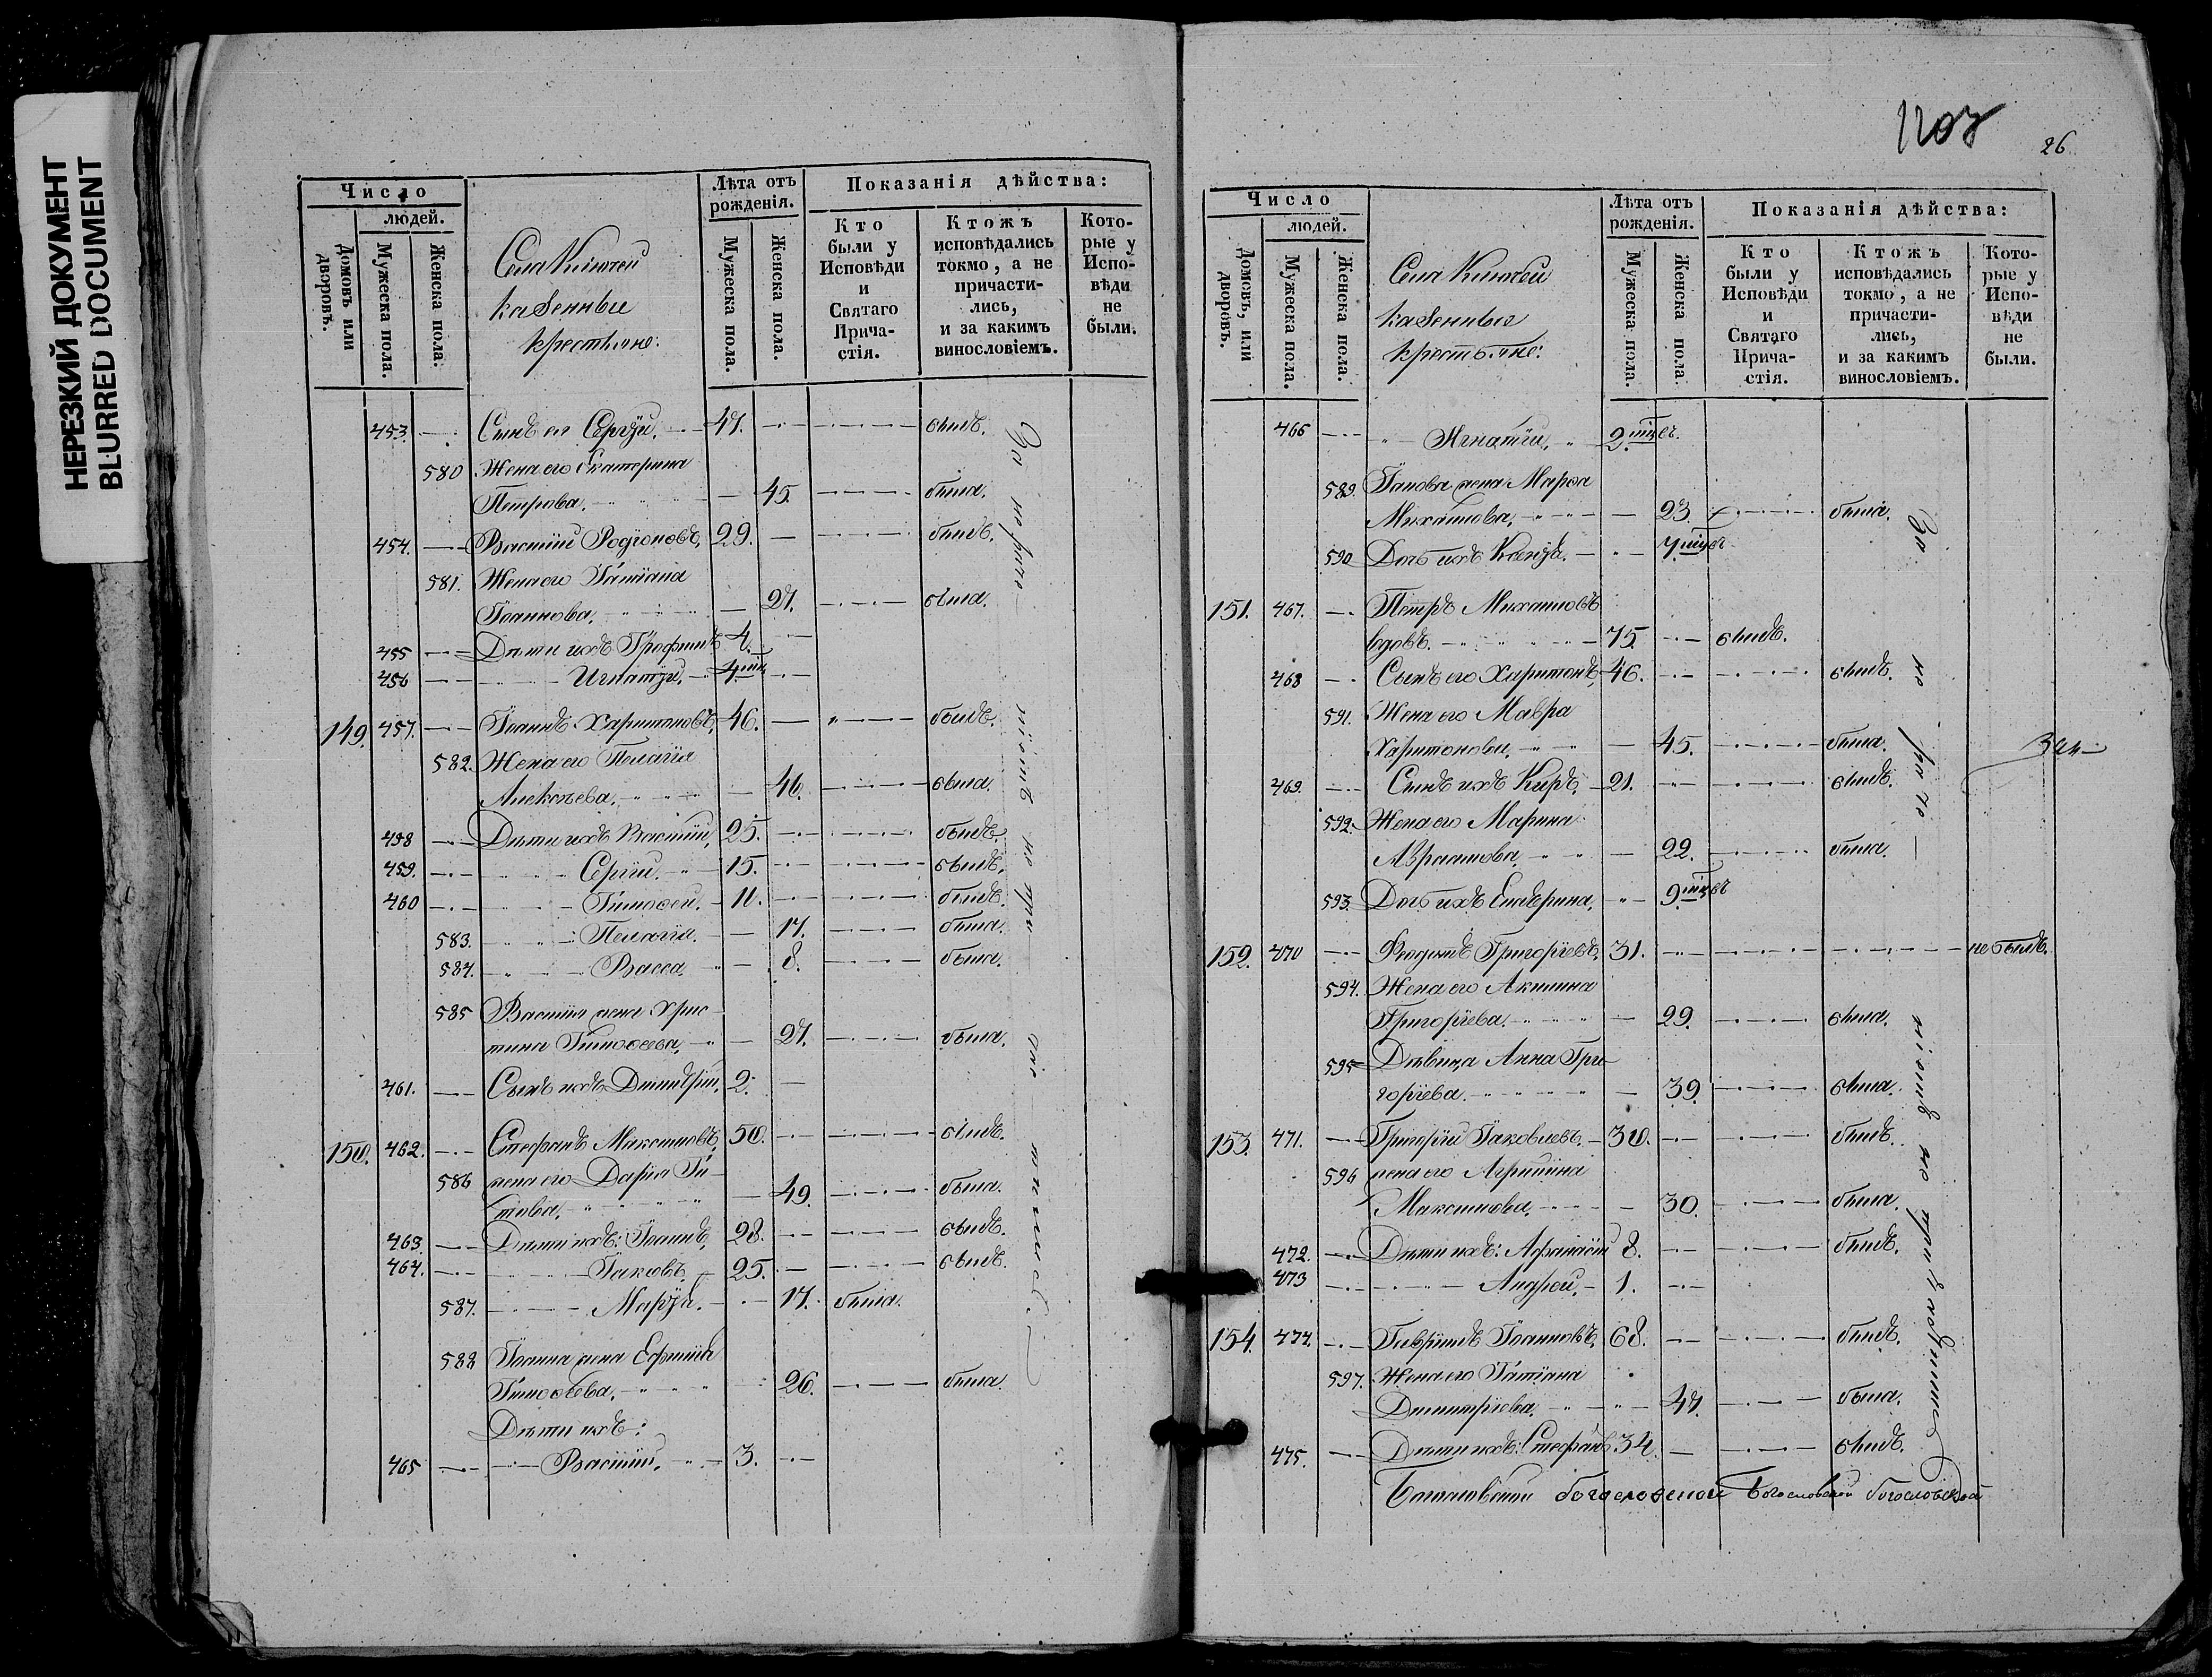 НЕРЕЗКИЙ ДОКУМЕНТ
BLURRED DOCUMENT
Число
людей.
Домовъ или дворовъ.
Мужеска пола.
Женска пола.
Села Ключей
казенныи
крестьяне:
Лѣта отъ рожденія.
Мужеска пола.
Женска пола.
Показанія дѣйства:
Кто были у Исповѣди и Святаго Прича-стія.
Ктожъ исповѣдались токмо, а не причасти-лись, и за какимъ винословіемъ.
Кото-рые у Испо-вѣди не были.
453. Сынъ ея Сергій. 47. былъ.
580 Жена его Екатерина
Петрова. 45. была.
454. Василій Родіоновъ, 29. былъ.
581. Жена его Татіана
Іоаннова, 27. была.
455 Дѣти ихъ Трофимъ 4.
456 Игнатій, 4
149. 457. Іоаннъ Харитоновъ, 46. былъ.
582. Жена его Пелагія
Алексѣева, 46. была.
458 Дѣти ихъ Василій, 25. былъ.
459. Сергій. 15. былъ.
460 Тимофей. 11. былъ.
583. Пелагія. 17. была.
584. Васса 8. была.
585 Василія жена Хрис-
тина Тимофеева, 27. была.
461. Сынъ ихъ Димитрій, 2.
150. 462. Стефанъ Максимовъ, 50. былъ.
586 жена его Дарія Ти-
това, 49. была.
463. Дѣти ихъ: Іоаннъ, 28. былъ.
464. Іаковъ, 25. былъ.
587. Марія. 17. была.
588 Іоанна жена Ефимія
Тимофеева, 26. была.
Дѣти ихъ:
465 Василій, 3.
За не
1203
26
Число
людей.
Домовъ, или дворовъ.
Мужеска пола.
Женска пола.
Села Ключей
казенныя
крестьяне:
Лѣта отъ рожденія.
Мужеска пола.
Женска пола.
Показанія дѣйства:
Кто были у Исповѣди и Святаго Прича-стія.
Ктожъ исповѣдались токмо, а не причасти-лись, и за какимъ винословіемъ.
Кото-рые у Испо-вѣди не были.
466 Игнатій, 2 мцъ.
589. Іакова жена Марѳа
Михаилова, 23. была.
590 Дочь ихъ Ксенія. 7 мцъ
151. 467. Петръ Михаиловъ
вдовъ. 75. былъ.
468 Сынъ его Харитонъ, 46. былъ.
591. Жена его Мавра
Харитонова, 45. была.
469. Сынъ ихъ Киръ, 21. былъ.
592. Жена его Марина
Авраамова, 22. была.
593. Дочь ихъ Екатерина, 9 мцъ
152. 470 Ѳеодотъ Григорьевъ, 31. не былъ.
594. Жена его Акилина
Григорьева. 29. была.
595 Дѣвица Анна Гри-
горьева. 39. была.
153. 471. Григорій Іаковлевъ. 30. былъ.
596 жена его Агрипина
Максимова, 30. была.
472. Дѣти ихъ: Афанасій 8. былъ.
473 Андрей, 1.
154. 474. Гавріилъ Іоанновъ, 68. былъ.
597. Жена его Татіана
Димитріева, 47. была.
475. Дѣти ихъ: Стефанъ 34. былъ.
За не
Богословской